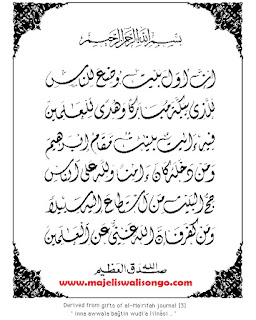 بسم الله الرحمن الرحيم
إن أول بيت وضع للناس
للذي ببكة مباركا وهدى للعالمين
فيه آيات بينات مقام إبراهيم
ومن دخله كان آمنا ولله على الناس
حج البيت من استطاع إليه سبيلا
ومن كفر فإن الله غني عن العالمين
صدق الله العظيم
www.majeliswalisongo.com
Derived from gifts of al-Hairifah journal [3]
" inna awwala baytin wudi'a lilnasi ... "